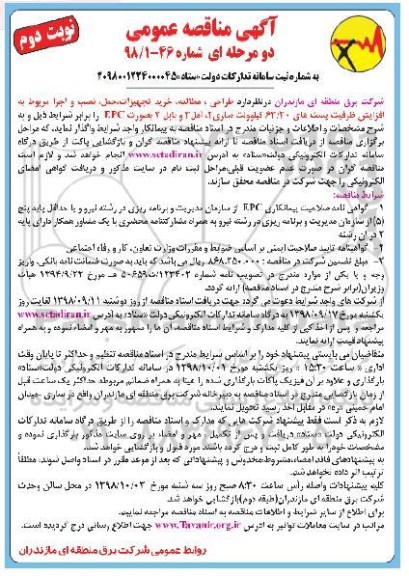 نوبت دوم
آگهی مناقصه عمومی
دو مرحله ای شماره ۴۶-۹۸/۱
به شماره ثبت سامانه تدارکات دولت «ستاد» ۲۰۹۸۰۰۱۲۲۴۰۰۰۰۴۵
شرکت برق منطقه ای مازندران در نظر دارد طراحی ، مطالعه، خرید تجهیزات،حمل، نصب و اجرا مربوط به
افزایش ظرفیت پست های ۶۳/۲۰ کیلوولت ساری۲، آمل۲ و بابل ۲ بصورت EPC را برابر شرایط ذیل و به
شرح مشخصات و اطلاعات و جزئیات مندرج در اسناد مناقصه به پیمانکار واجد شرایط واگذار نماید، که مراحل
برگزاری مناقصه از دریافت اسناد مناقصه تا ارائه پیشنهاد مناقصه گران و بازگشایی پاکت از طریق درگاه
سامانه تدارکات الکترونیکی دولت«ستاد» به آدرس www.setadiran.ir انجام خواهد شد و لازم است
مناقصه گران در صورت عدم عضویت قبلی،مراحل ثبت نام در سایت مذکور و دریافت گواهی امضای
الکترونیکی را جهت شرکت در مناقصه محقق سازند.
شرایط مناقصه:
۱- گواهی نامه صلاحیت پیمانکاری EPC از سازمان مدیریت و برنامه ریزی در رشته نیرو و یا حداقل پایه پنج
(۵) از سازمان مدیریت و برنامه ریزی در رشته نیرو به همراه مشارکتنامه محضری با یک مشاور همکار دارای پایه
۲ در آن رشته
۲- گواهینامه تایید صلاحیت ایمنی بر اساس ضوابط و مقررات وزارت تعاون، کار و رفاه اجتماعی
۳- مبلغ تضمین شرکت در مناقصه: ۸۶۸،۲۵۰،۰۰۰ ریال می باشد که باید به صورت ضمانت نامه بانکی، واریز
وجه و یا یکی از موارد مندرج در تصویب نامه شماره ۱۲۳۴۰۲/ت۵۰۶۵۹ هـ مورخ ۱۳۹۴/۹/۲۲ هیأت
وزیران(برابر شرح مندرج در اسناد مناقصه) ارائه گردد.
از شرکت های واجد شرایط دعوت می گردد جهت دریافت اسناد مناقصه از روز دوشنبه ۱۳۹۸/۰۹/۱۱ لغایت روز
یکشنبه مورخ ۱۳۹۸/۰۹/۱۷ به درگاه سامانه تدارکات الکترونیکی دولت «ستاد» به آدرس www.setadiran.ir
مراجعه و پس از اخذ کپی از کلیه مدارک و شرایط اسناد مناقصه، آن ها را ممهور به مهر و امضاء نموده و به همراه
پیشنهاد قیمت ارایه نمایند.
متقاضیان می بایستی پیشنهاد خود را بر اساس شرایط مندرج در اسناد مناقصه تنظیم و حداکثر تا پایان وقت
اداری « ساعت ۱۵:۳۰ » روز یکشنبه مورخ ۱۳۹۸/۱۰/۰۱ در سامانه تدارکات الکترونیکی دولت«ستاد»
بارگذاری و علاوه بر آن فیزیک پاکات بارگذاری شده را عینا به همراه ضمائم مربوطه حداکثر یک ساعت قبل
از زمان بازگشایی مندرج در اسناد مناقصه به دبیرخانه شرکت برق منطقه ای مازندران واقع در ساری -میدان
امام خمینی «ره» در مقابل اخذ رسید تحویل نمایند.
لازم به ذکر است فقط پیشنهاد شرکت هایی که مدارک و اسناد مناقصه را از طریق درگاه سامانه تدارکات
الکترونیکی دولت «ستاد» دریافت و پس از تکمیل، مهر و امضاء بر روی سایت مذکور بارگذاری نموده و
مشخصات خود را به طور کامل ثبت و درج کرده باشند مورد قبول و بازگشایی خواهد شد.
به پیشنهادهای فاقد امضاء،مشروط،مخدوش و پیشنهاداتی که بعد از موعد مقرر در اسناد واصل شوند، مطلقاً
ترتیب اثر داده نخواهد شد.
کلیه پیشنهادات واصله رأس ساعت ۸:۳۰ صبح روز سه شنبه مورخ ۱۳۹۸/۱۰/۰۳ در محل سالن وحدت
شرکت برق منطقه ای مازندران(طبقه دوم)بازگشایی خواهد شد.
برای اطلاع از سایر شرایط و اطلاعات مناقصه به اسناد مناقصه مراجعه گردد.
مراتب در سایت معاملات توانیر به آدرس www.Tavanir.org.ir جهت اطلاع رسانی درج گردیده است.
روابط عمومی شرکت برق منطقه ای مازندران